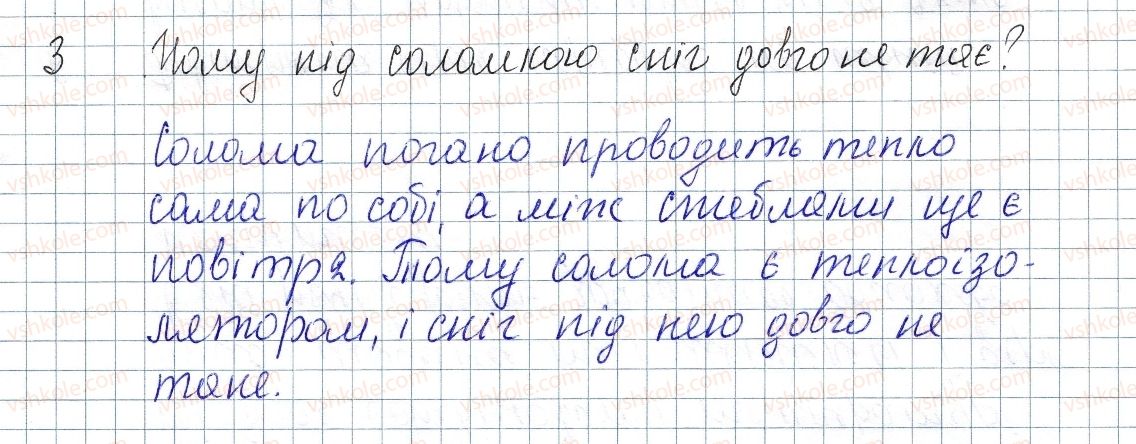 3 Чому під соломкою сніг довго не тяє?
Солома погано проводить тепло
сама по собі, а між стеблами ще є
повітря. Тому солома є теплоізо-
лятором, і сніг під нею довго не
тане.